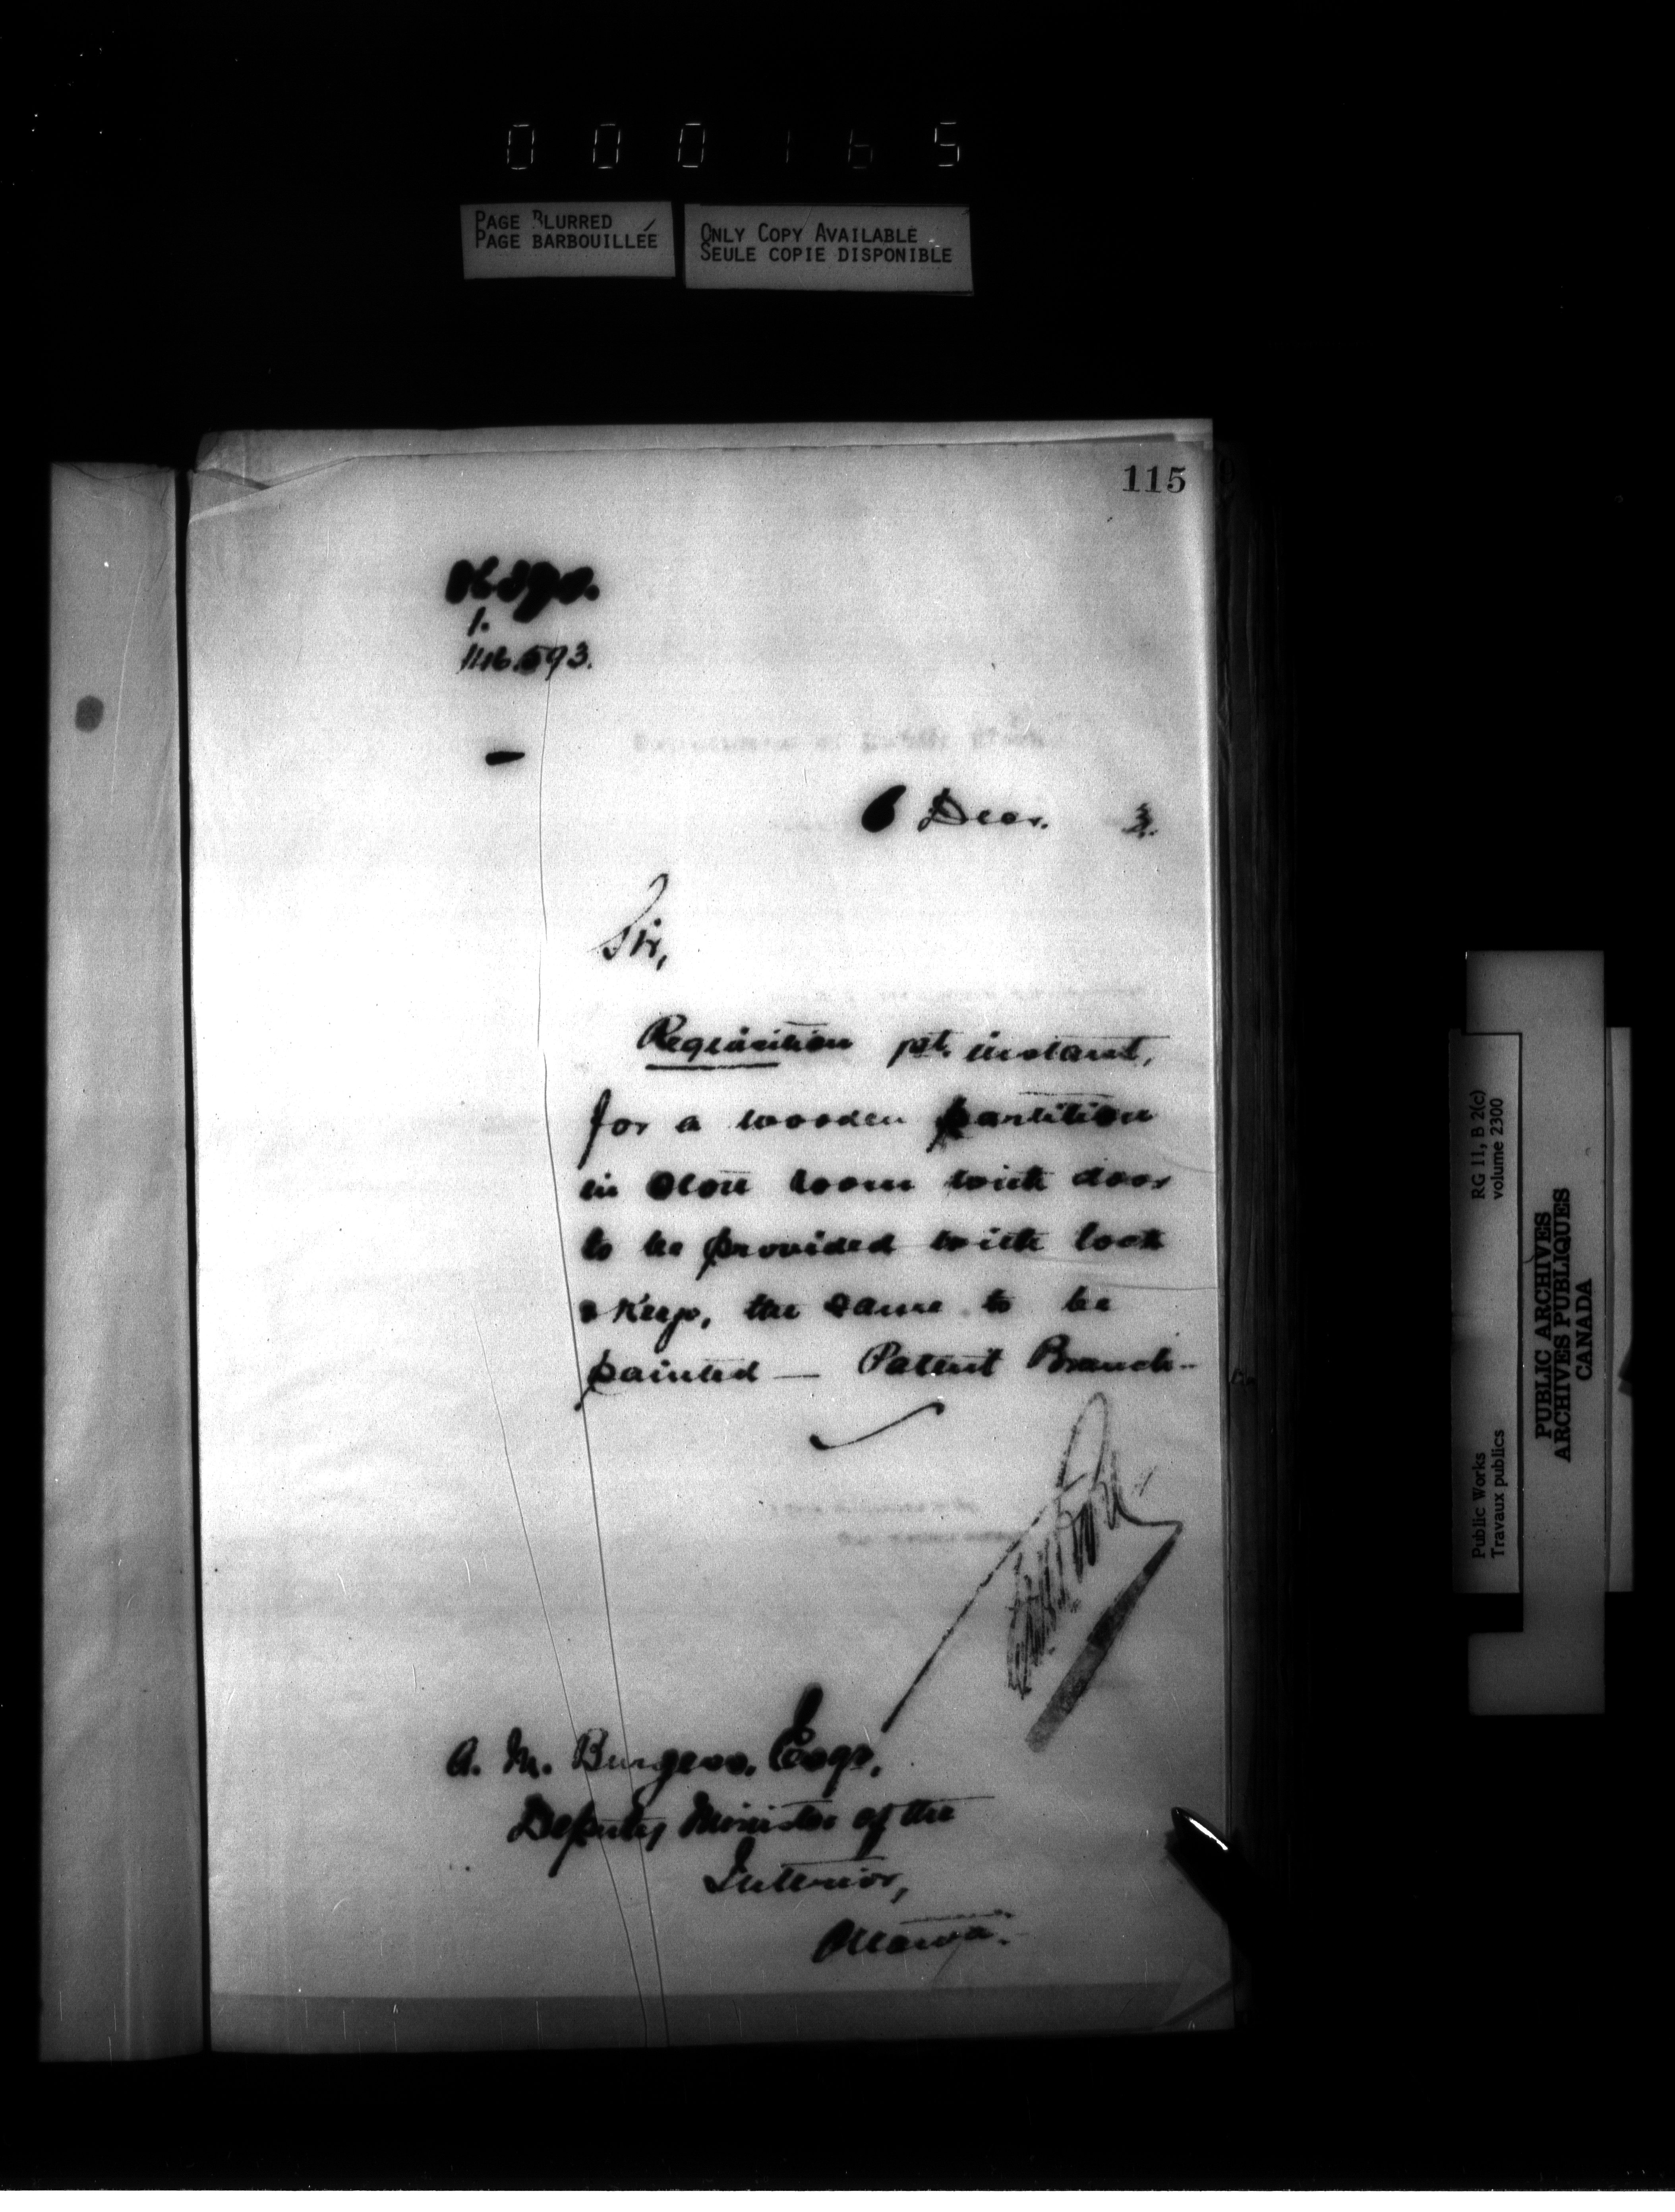 000165
PAGE BLURRED
PAGE BARBOUILLÉE
ONLY COPY AVAILABLE
SEULE COPIE DISPONIBLE
115
1.
146.593.
6 Decr. 3.
Sir,
Requisition 1st. instant,
for a wooden partition
in store room with door
to be provided with lock
& Keys, the same to be
painted — Patent Branch -
A. M. Burgess, Esqr.
Deputy Minister of the
Interior,
Ottawa.
RG 11, B 2(c)
volume 2300
Public Works
Travaux publics
PUBLIC ARCHIVES
ARCHIVES PUBLIQUES
CANADA